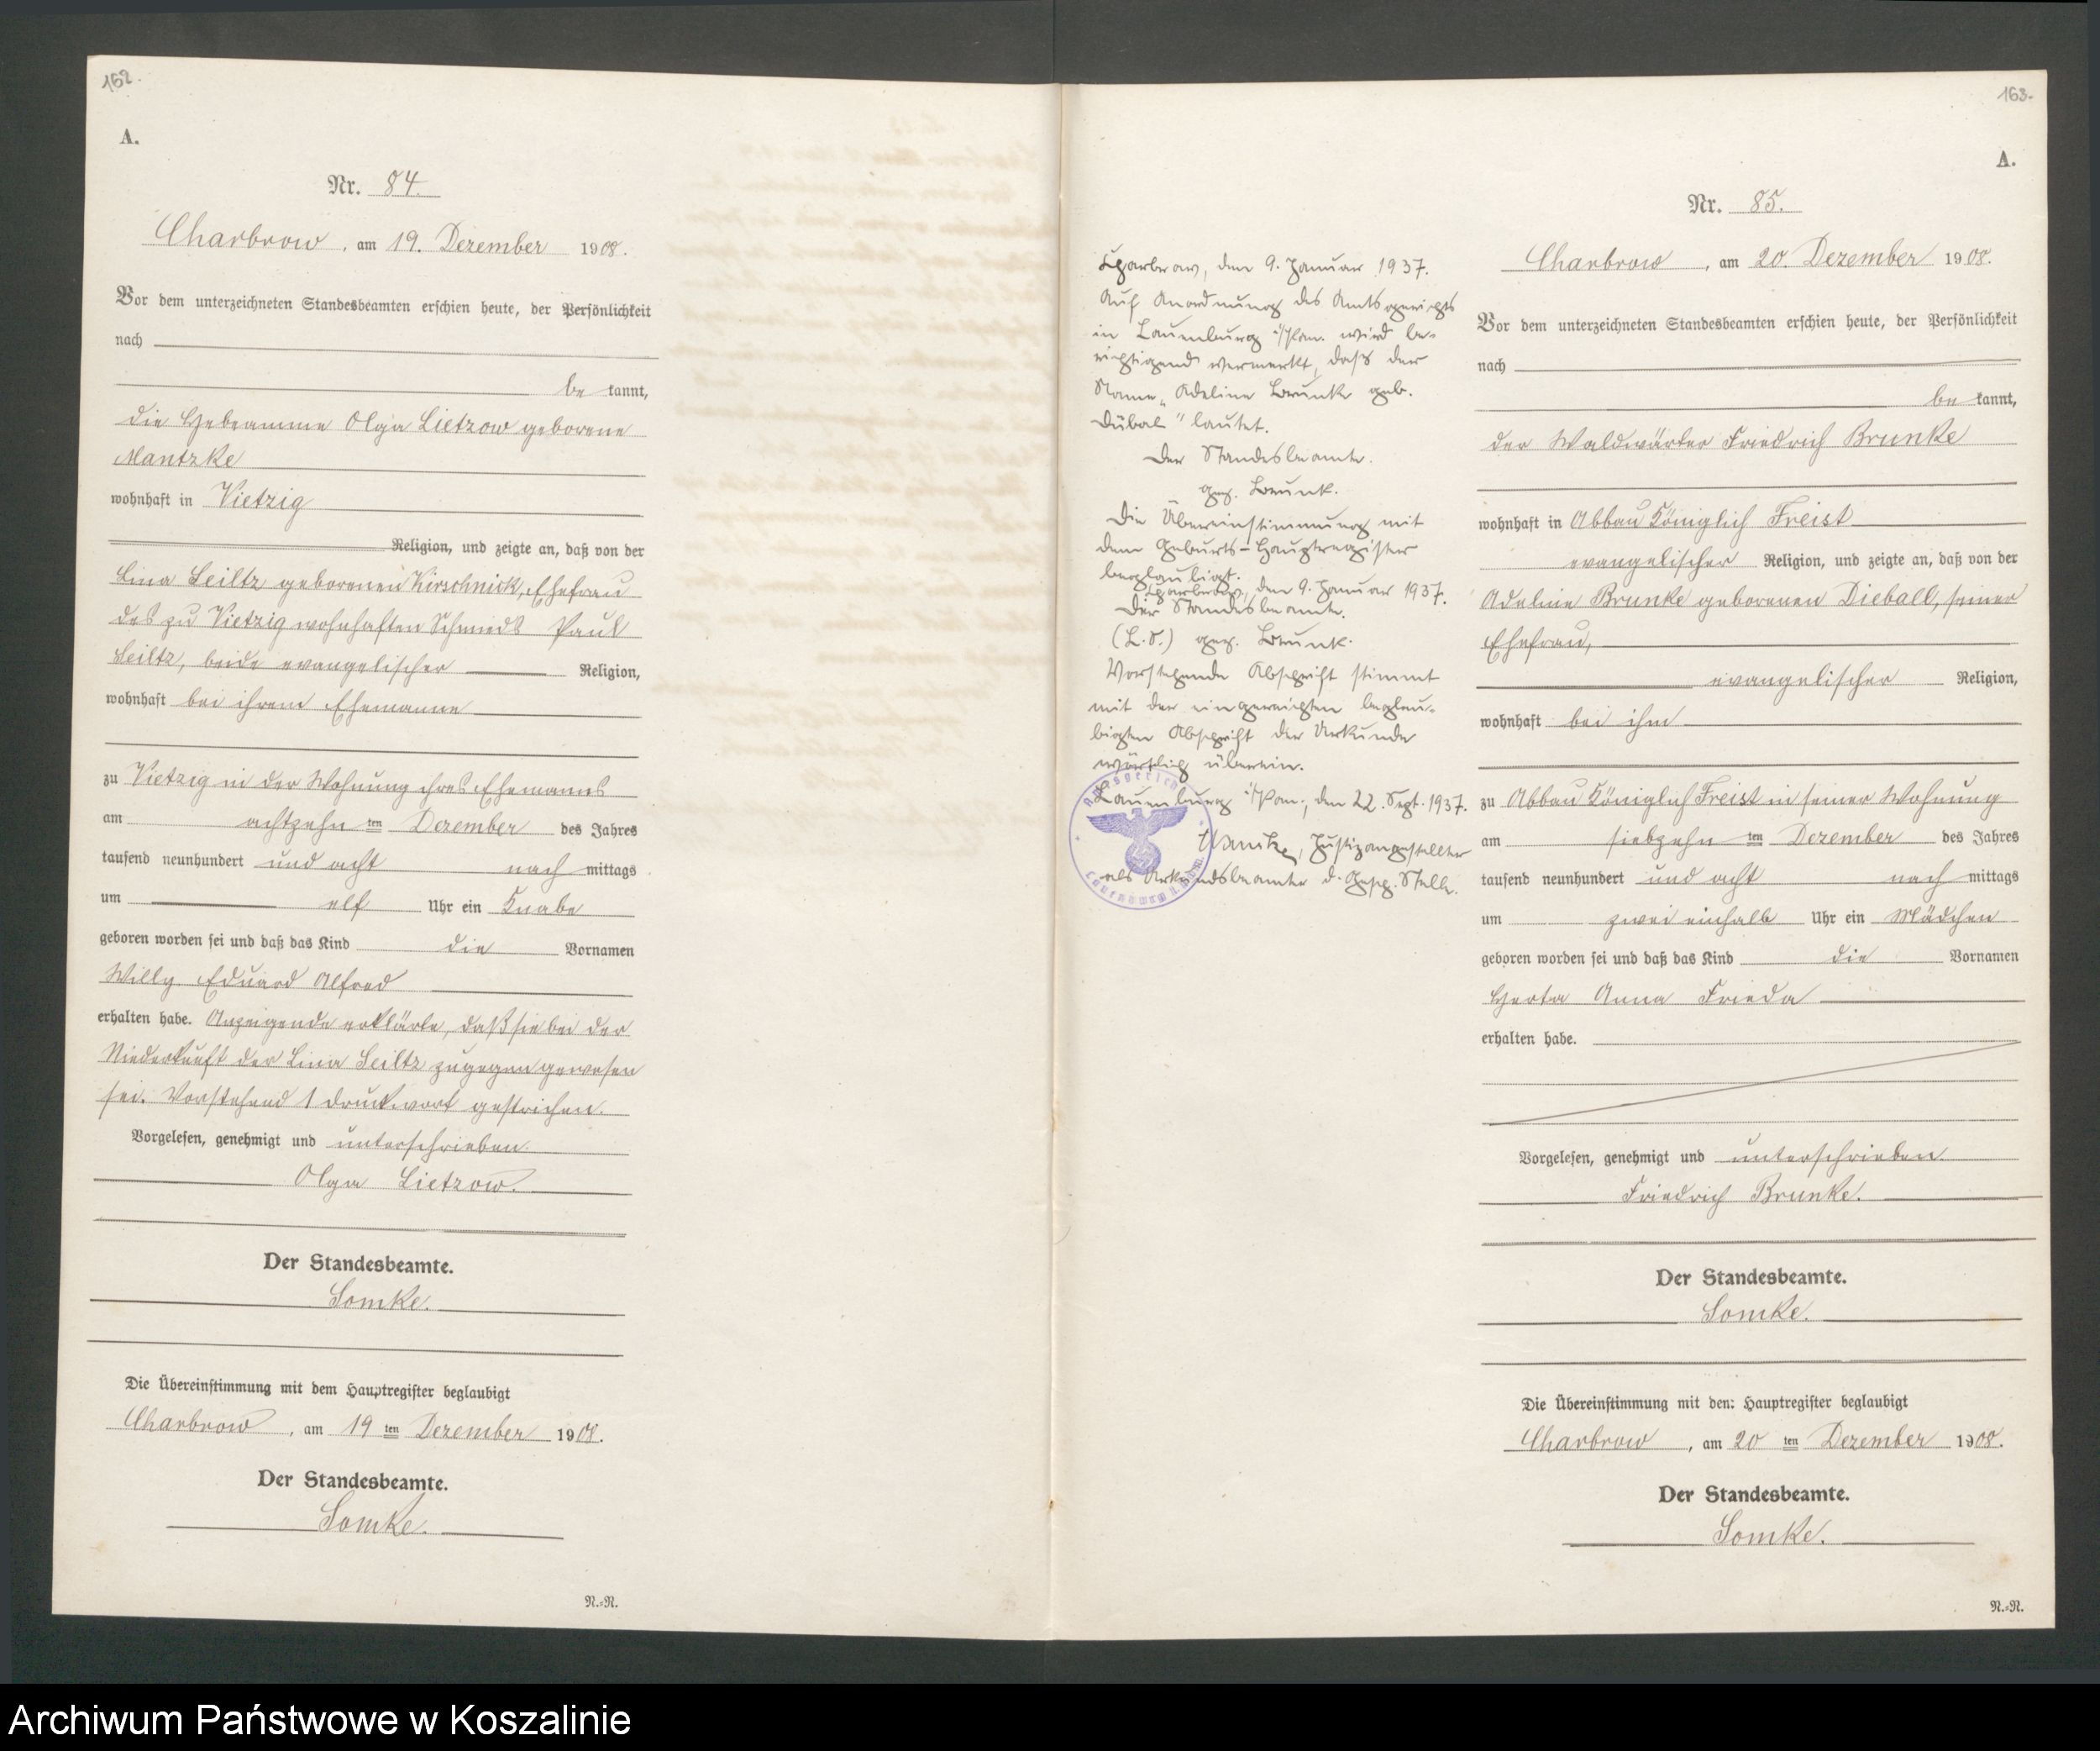 162.
A.
Nr. 84.
Charbrow, am 19. Dezember 1908.
Vor dem unterzeichneten Standesbeamten erschien heute, der Persönlichkeit
nach
be kannt,
die Hebeamme Olga Lietzow geborene
Mantzke
wohnhaft in Vietzig
Religion, und zeigte an, daß von der
Lina Seiltz geborenen Kirschnick, Ehefrau
des zu Vietzig wohnhaften Schmieds Paul
Seiltz, beide evangelischer Religion,
wohnhaft bei ihrem Ehemanne
zu Vietzig in der Wohnung ihres Ehemanns
am achtzehn ten Dezember des Jahres
tausend neunhundert und acht nach mittags
um elf Uhr ein Knabe
geboren worden sei und daß das Kind die Vornamen
Willy Eduard Alfred
erhalten habe. Anzeigende erklärte, daß sie bei der
Niederkunft der Lina Seiltz zugegen gewesen
sei. Vorstehend 1 Druckwort gestrichen.
Vorgelesen, genehmigt und unterschrieben.
Olga Lietzow.
Der Standesbeamte.
Somke.
Die Übereinstimmung mit dem Hauptregister beglaubigt
Charbrow, am 19 ten Dezember 1908.
Der Standesbeamte.
Somke.
N.=N.
163.
A.
Charbrow, den 9. Januar 1937.
Auf Anordnung des Amtsgerichts
in Lauenburg i/Pom. wird be-
richtigend vermerkt, daß der
Name „Adeline Brunke geb.
Dübal" lautet.
Der Standesbeamte.
gez. Brunk.
Die Übereinstimmung mit
dem Geburts-Hauptregister
beglaubigt.
Charbrow, den 9. Januar 1937.
Der Standesbeamte.
(L.S.) gez. Brunk.
Vorstehende Abschrift stimmt
mit der eingereichten beglau-
bigten Abschrift der Urkunde
wörtlich überein.
Lauenburg i/Pom., den 22. Sept. 1937.
Justizangestellter
als Urkundsbeamter d. Gesch. Stelle.
Nr. 85.
Charbrow, am 20. Dezember 1908.
Vor dem unterzeichneten Standesbeamten erschien heute, der Persönlichkeit
nach
be kannt,
der Waldwärter Friedrich Brunke
wohnhaft in Abbau Königlich Freist
evangelischer Religion, und zeigte an, daß von der
Adeline Brunke geborenen Dieball, seiner
Ehefrau,
evangelischer Religion,
wohnhaft bei ihm
zu Abbau Königlich Freist in seiner Wohnung
am siebzehn ten Dezember des Jahres
tausend neunhundert und acht nach mittags
um zwei einhalb Uhr ein Mädchen
geboren worden sei und daß das Kind die Vornamen
Herta Anna Frieda
erhalten habe.
Vorgelesen, genehmigt und unterschrieben
Friedrich Brunke.
Der Standesbeamte.
Somke.
Die Übereinstimmung mit dem Hauptregister beglaubigt
Charbrow, am 20 ten Dezember 1908.
Der Standesbeamte.
Somke.
N.=N.
Archiwum Państwowe w Koszalinie